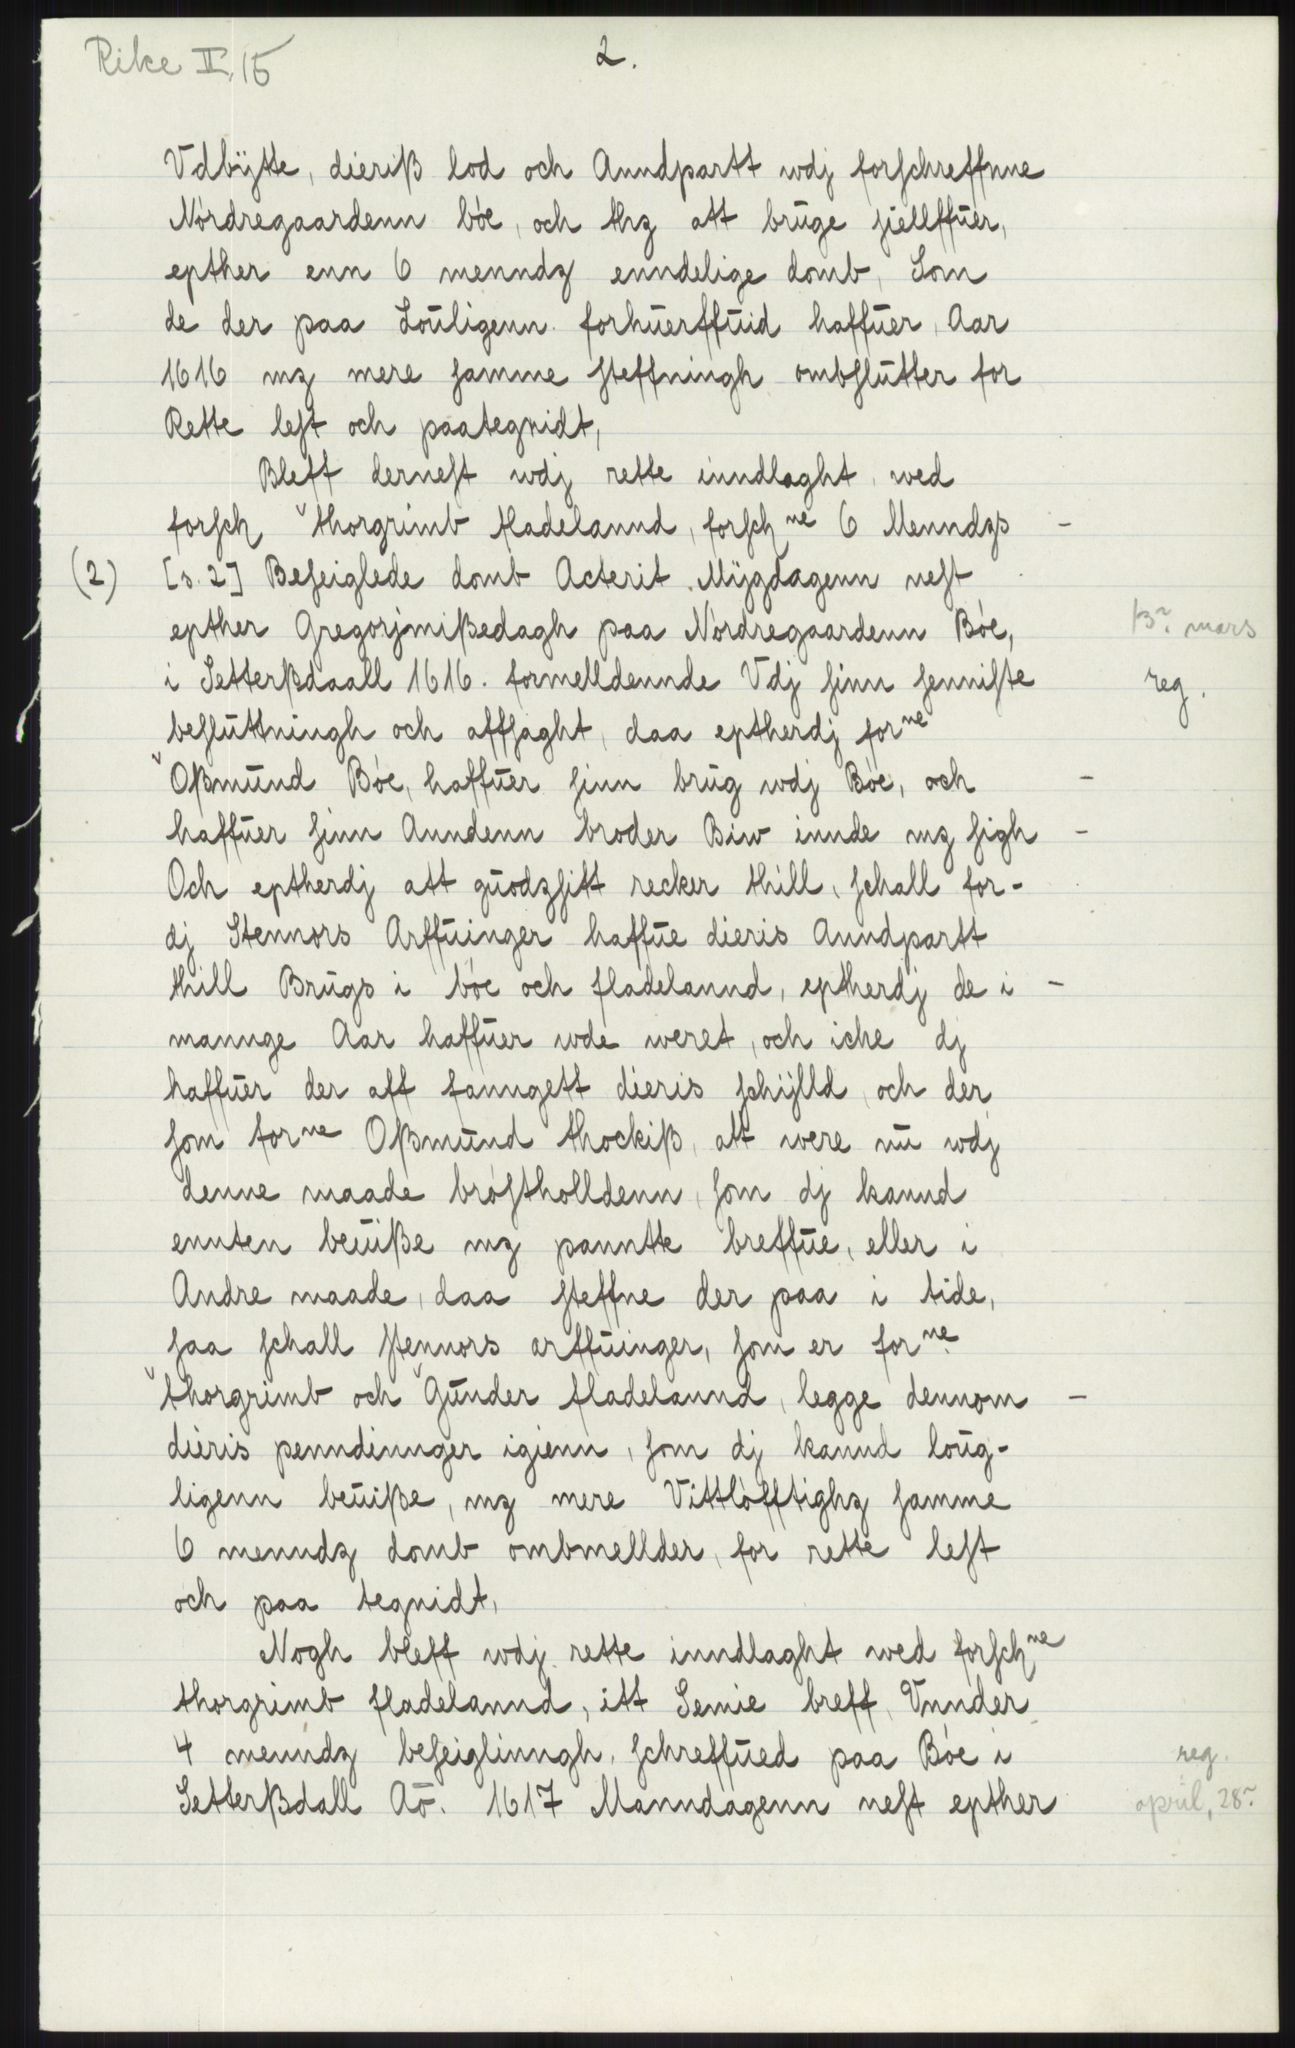 Rike II, 15
2.
Vdbÿtte, dieriß lod och Anndpartt wdj forschreffnne
Nórdregaardenn bóe, och thz att brúge siellffúer,
epther enn 6 menndz enndelige domb, Som
de der paa Loúligenn forhúerffúid haffúer, Aar
1616 mz mere samme steffningh ombslútter for
Rette lest och paategnidt,
Bleff dernest wdj rette inndlaght, wed
forsch thorgrimb fladelannd, forsch ne 6 Menndzs -
(2) [s. 2] Beseiglede domb Acterit Mijgdagenn nest
epther Gregorjmißedagh paa Nórdregaardenn Bóe, 13. mars
i Setterßdaall 1616. formelldennde Vdj sinn senniste reg.
beslúttningh och affsaght, daa eptherdj for ne
Oßmúnd Bóe, haffúer sinn brúg wdj Bóe, och -
haffúer sinn Anndenn broder Biw innde mz sigh -
Och eptherdj att gúodzsitt recker thill, schall for-
dj Stennors Arffúinger haffúe dieris Anndpartt
thill Brúgs i bóe och fladelannd, eptherdj de i -
mannge Aar haffúer wde weret, och iche dj
haffúer der aff fanngett dieris schijlld, och der
som for ne Oßmúnd thockiß, att were nú wdj
denne maade bróstholldenn, som dj kannd
ennten beúiße mz panntte breffúe, eller i
Andre maade, daa steffne der paa i tide,
saa schall stennors arffúinger, som er for ne
thorgrimb och Gúnder fladelannd, legge dennom -
dieris penndinnger igienn, som dj kannd loúg-
ligenn beúiße, mz mere Vittlófftighz samme
6 menndz domb ombmellder, for rette lest
och paa tegnidt,
Nogh bleff wdj rette inndlaght wed forsch ne
thorgrimb fladelannd, itt Semie breff, Vnnder
4 menndz beseiglinngh, schreffúed paa Bóe i reg.
Setterßdall Aō. 1617 Manndagenn nest epther april, 28.